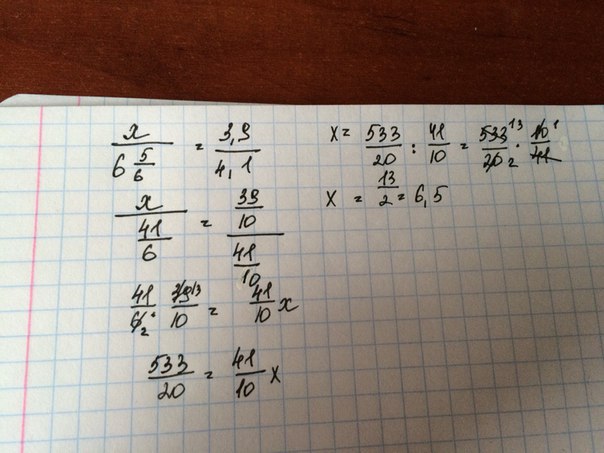 x / 6 5/6 = 3,9 / 4,1
x / 41/6 = 39/10 / 41/10
41/6 2 · 39 13/10 = 41/10 x
533/20 = 41/10 x
x = 533/20 : 41/10 = 533 13/20 2 · 10 1/41
x = 13/2 = 6,5